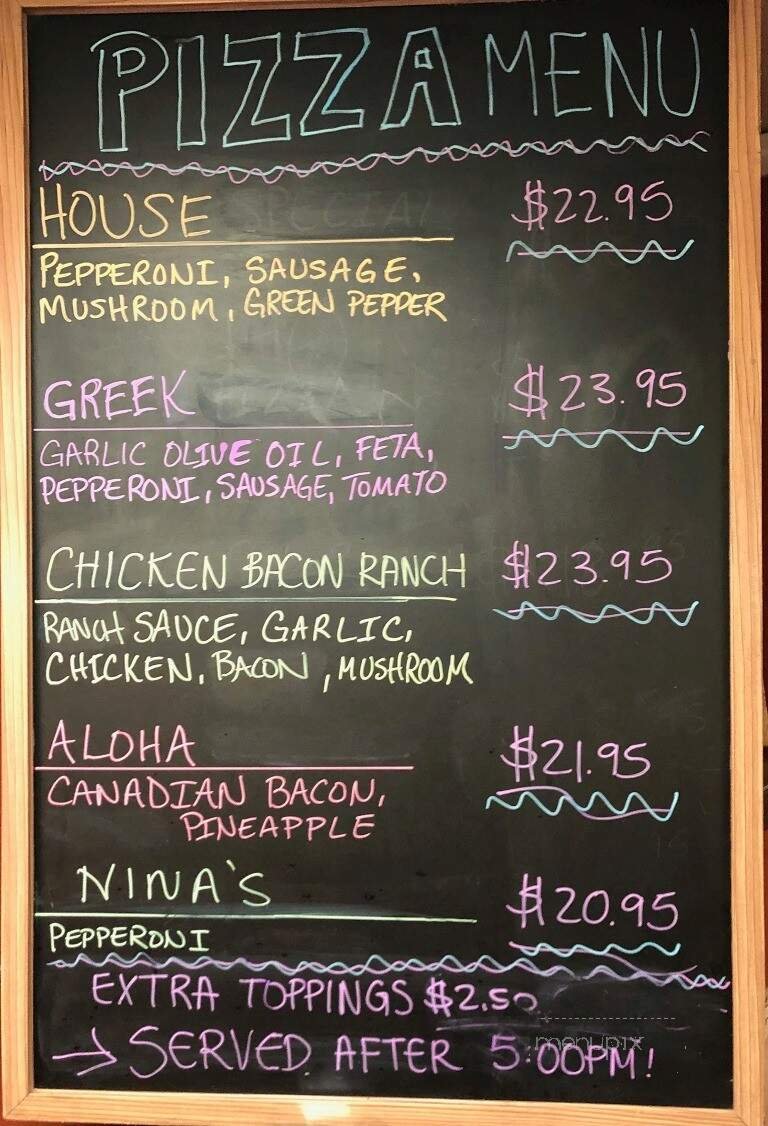 PIZZA MENU
HOUSE $22.95
PEPPERONI, SAUSAGE,
MUSHROOM, GREEN PEPPER
GREEK $23.95
GARLIC OLIVE OIL, FETA,
PEPPERONI, SAUSAGE, TOMATO
CHICKEN BACON RANCH $23.95
RANCH SAUCE, GARLIC,
CHICKEN, BACON, MUSHROOM
ALOHA $21.95
CANADIAN BACON,
PINEAPPLE
NINA'S $20.95
PEPPERONI
EXTRA TOPPINGS $2.50
→ SERVED AFTER 5:00PM!
menupix